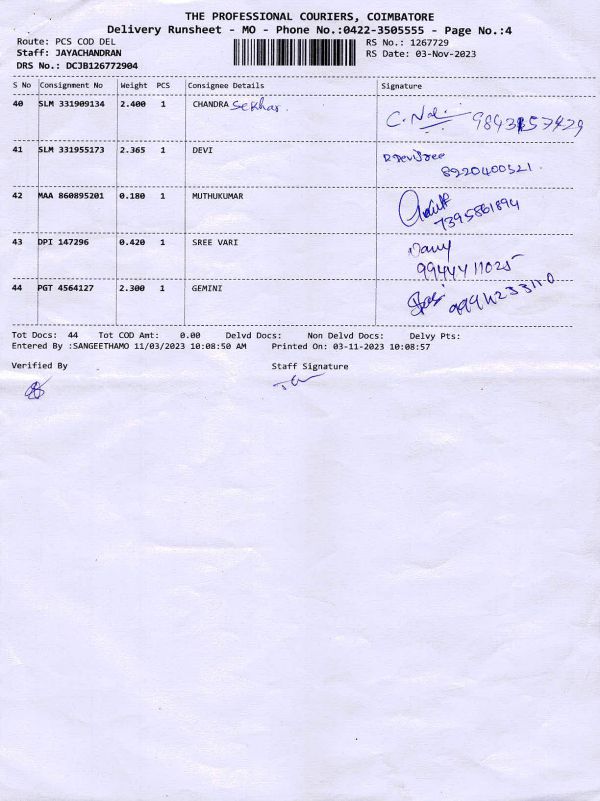 THE PROFESSIONAL COURIERS, COIMBATORE
Delivery Runsheet - MO - Phone No.:0422-3505555 - Page No.:4
Route: PCS COD DEL RS No.: 1267729
Staff: JAYACHANDRAN RS Date: 03-Nov-2023
DRS No.: DCJB126772904
S No Consignment No Weight PCS Consignee Details Signature
40 SLM 331909134 2.400 1 CHANDRA Sekhar
41 SLM 331955173 2.365 1 DEVI R Devisree
8920400521
42 MAA 860895201 0.180 1 MUTHUKUMAR
7395861894
43 DPI 147296 0.420 1 SREE VARI
9944411025
44 PGT 4564127 2.300 1 GEMINI
Tot Docs: 44 Tot COD Amt: 0.00 Delvd Docs: Non Delvd Docs: Delvy Pts:
Entered By :SANGEETHAMO 11/03/2023 10:08:50 AM Printed On: 03-11-2023 10:08:57
Verified By Staff Signature